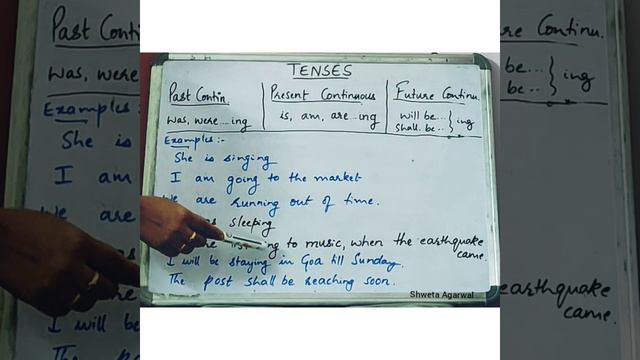 TENSES
Past Contin. Present Continuous Future Continu.
was, were....ing is, am, are....ing will be... shall be.. } ing
Examples :-
She is singing
I am going to the market
We are running out of time.
sleeping
to music, when the earthquake
came.
I will be staying in Goa till Sunday.
The post shall be reaching soon.
Shweta Agarwal